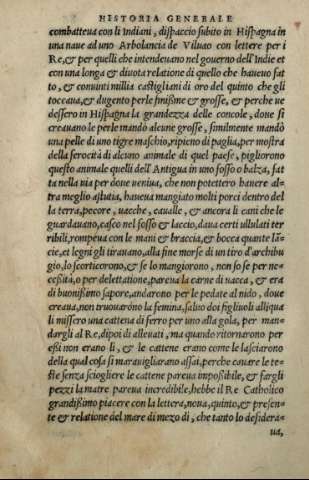 HISTORIA GENERALE
combatteua con li Indiani, dispaccio subito in Hispagna in
una naue ad uno Arbolancia de Viluao con lettere per i
Re, & per quelli che intendeuano nel gouerno dell'Indie et
con una longa & diuota relatione di quello che haueuo fat
to, & conuinti millia castigliani di oro del quinto che gli
toccaua, & dugento perle finissime & grosse, & perche ue
dessero in Hispagna la grandezza delle concole, doue si
creauano le perle mandò alcune grosse, similmente mandò
una pelle di uno tigre maschio, ripieno di paglia, per mostra
della ferocità di alcuno animale di quel paese, pigliorono
questo animale quelli dell'Antigua in uno fosso o balza, fat
ta nella uia per doue ueniua, che non potettero hauere al=
tra meglio astutia, haueua mangiato molti porci dentro del
la terra, pecore, uacche, caualle, & ancora li cani che le
guardauano, casco nel fosso & laccio, daua certi ululati ter
ribili, rompeua con le mani & braccia, & bocca quante lā=
cie, et legni gli tirauano, alla fine morse di un tiro d'archibu
gio, lo scorticorono, & se lo mangiorono, non so se per ne=
cessità, o per delettatione, pareua la carne di uacca, & era
di buonissimo sapore, andarono per le pedate al nido, doue
creaua, non truouarono la femina, saluo doi figliuoli alliqua
li missero una cattena di ferro per uno alla gola, per man=
dargli al Re, dipoi di alleuati, ma quando ritornarono per
essi non erano li, & le cattene erano come le lasciarono
della qual cosa si marauigliarono assai, perche cauare le te=
ste senza sciogliere le cattene pareua impossibile, & fargli
pezzi la matre pareua incredibile, hebbe il Re Catholico
grandissimo piacere con la lettera, noua, quinto, & presen=
te & relatione del mare di mezo di, che tanto lo desidera=
ua,